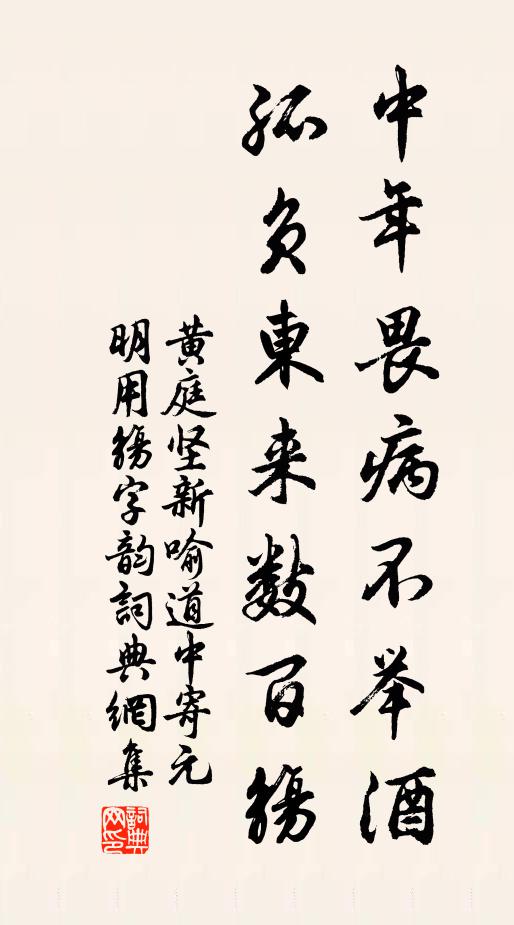 中年畏病不举酒
孤负東来数百觞
黄庭坚新喻道中寄元
明用觞字韵詞典網集
詞典